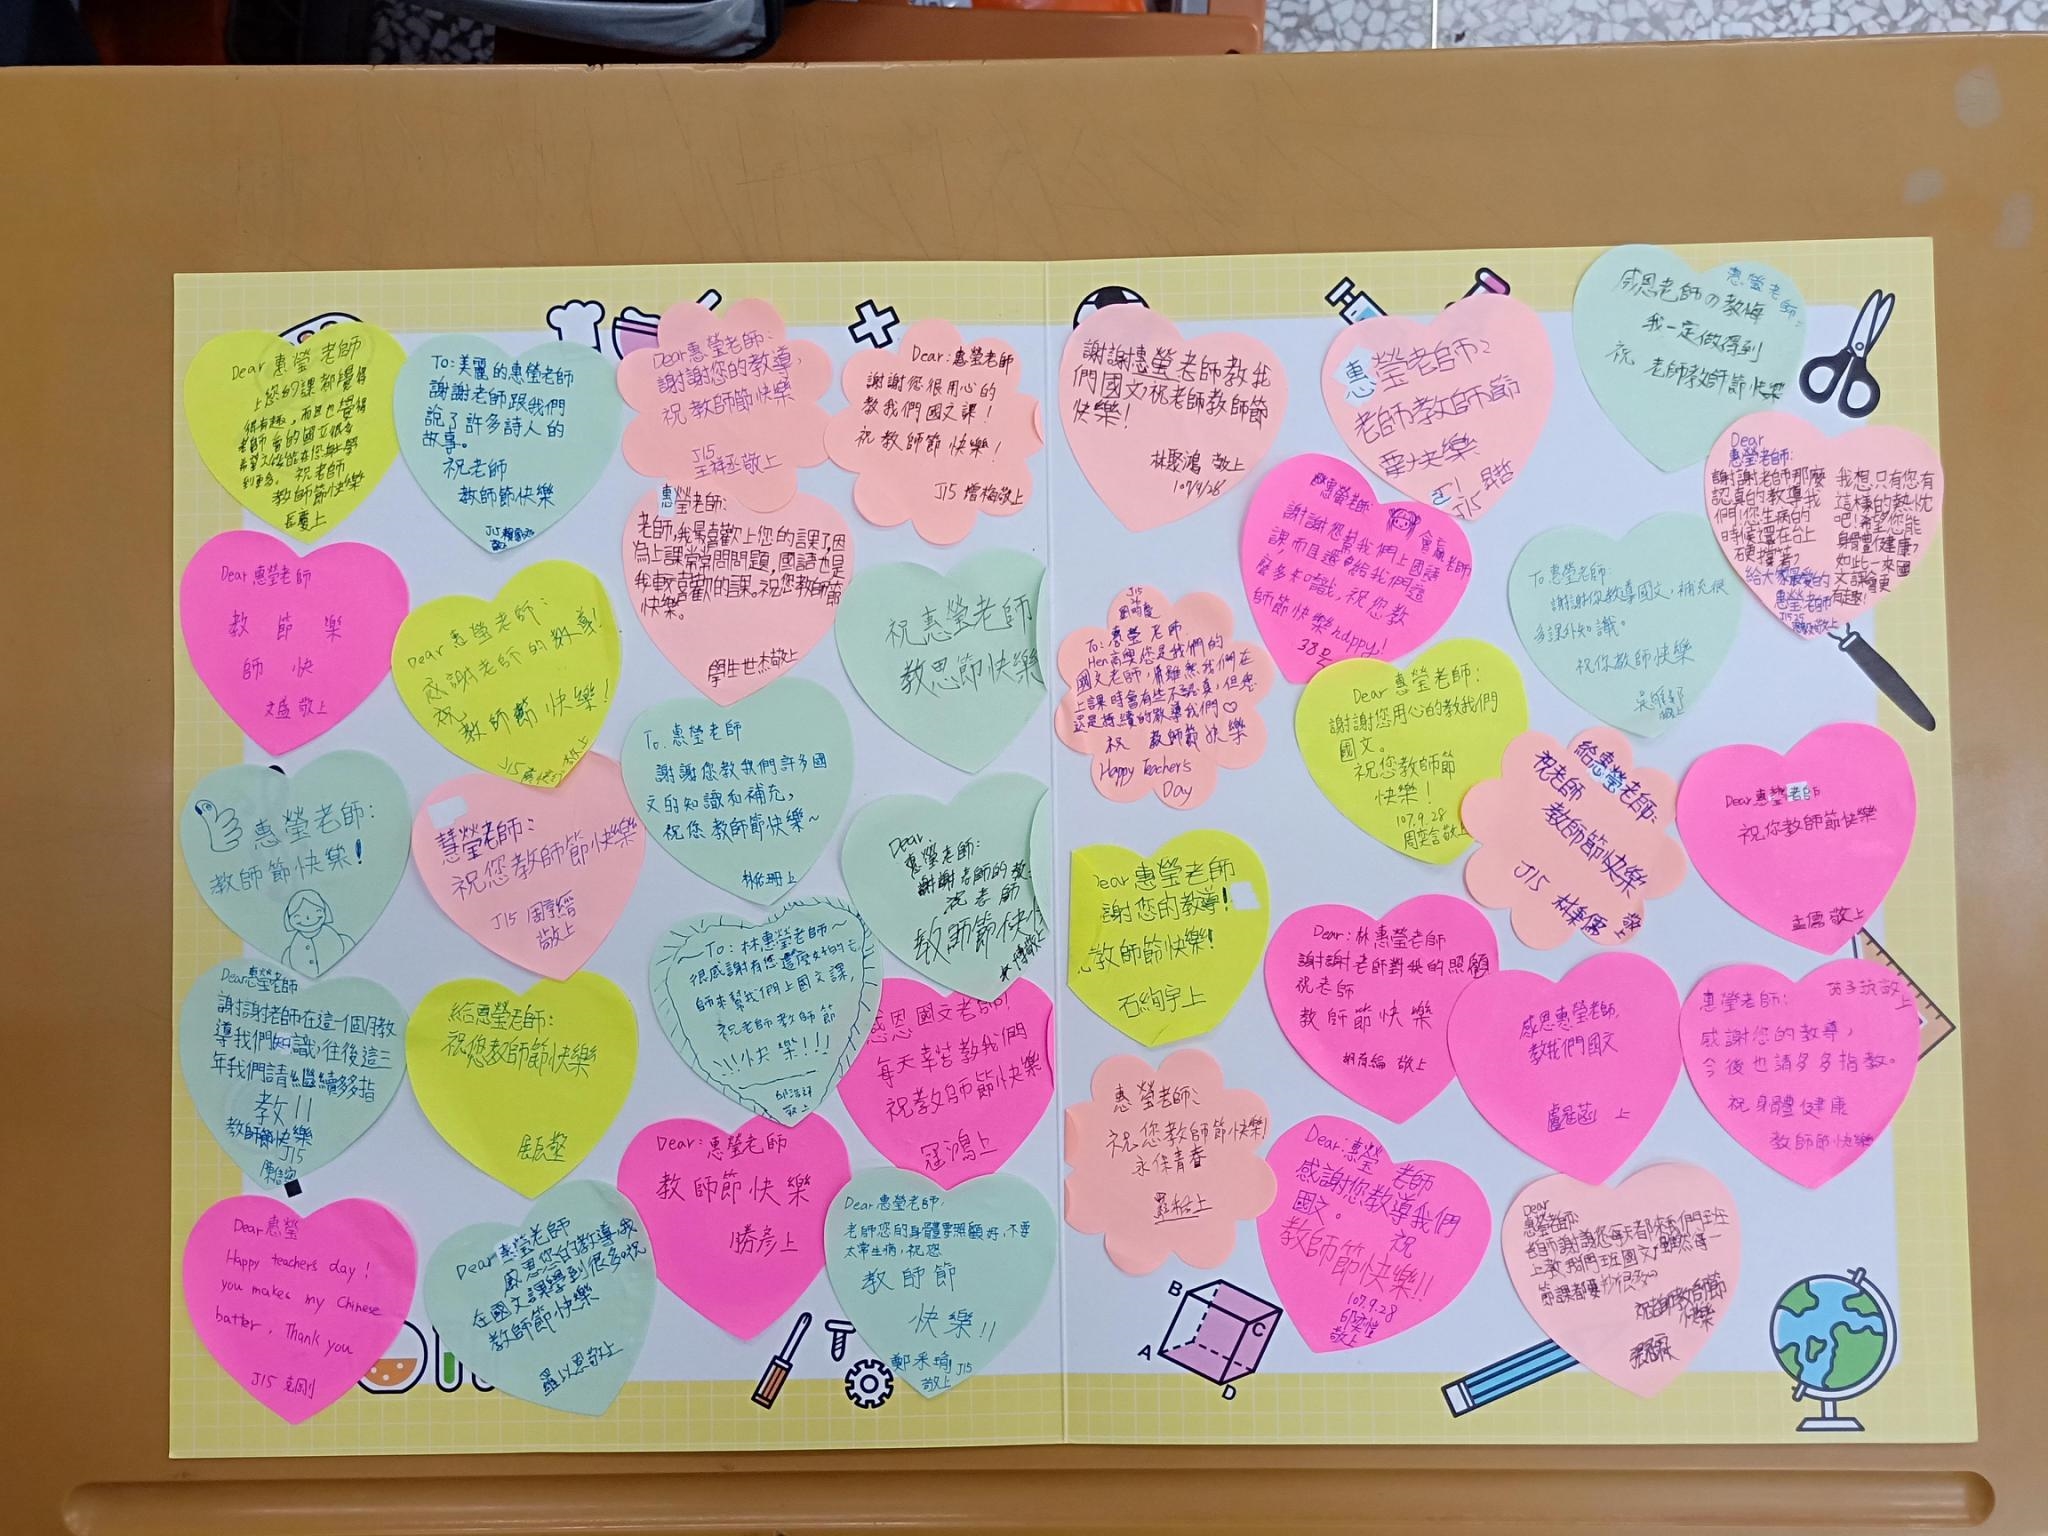 Dear 惠瑩老師
上您的課都覺得
很有趣，而且也覺得
祝老師
教師節快樂
To:美麗的惠瑩老師
謝謝老師跟我們
說了許多詩人的
故事。
祝老師
教師節快樂
Dear惠瑩老師:
謝謝您的教導,
祝 教師節快樂
J15
王祥丞敬上
Dear:惠瑩老師
謝謝您很用心的
教我們國文課!
祝教師節快樂!
惠瑩老師:
老師,我最喜歡上您的課了,因
為上課常常問問題,國語也是
我較喜歡的課。祝您教師節
快樂。
學生世杰敬上
Dear惠瑩老師
教 節 樂
師 快
敬上
Dear惠瑩老師:
感謝老師的教導!
祝
教師節快樂!
祝惠瑩老師
教思節快樂
To.惠瑩老師
謝謝您教我們許多國
文的知識和補充,
祝您教師節快樂~
惠瑩老師:
教師節快樂!
慧瑩老師:
祝您教師節快樂
J15
敬上
Dear
惠瑩老師:
謝謝老師的教
祝老師
教師節快
Dear惠瑩老師
謝謝老師在這一個月教
導我們知識,往後這三
年我們請繼續多多指
教!!
教師節快樂
J15
給恩瑩老師:
祝您教師節快樂
To:林惠瑩老師~
很感謝有您這麼好的老
師來幫我們上國文課,
祝老師教師節
!!!快樂!!!
敬上
感恩國文老師!
每天辛苦教我們
祝教師節快樂
冠鴻上
Dear:惠瑩老師
教師節快樂
勝彥上
Dear惠瑩老師,
老師您的身體要照顧好,不要
太常生病,祝您
教師節
快樂!!
鄭采瑜 J15
敬上
Dear惠瑩
Happy teachers day!
you makes my Chinese
batter, Thank you
J15 克剛
Dear惠瑩老師
感恩您的教導,我
在國文課學到很多,祝
教師節快樂
羅以恩敬上
謝謝惠瑩老師教我
們國文,祝老師教師節
快樂!
林聖鴻 敬上
107/9/28
惠瑩老師:
老師教師節
快樂
J15
惠瑩老師:
感恩老師の教悔
我一定做得到
祝 老師教師節快樂
Dear
惠瑩老師:
謝謝老師那麼
認真的教導我
們!您生病的
時候還在台上
硬撐著,
給大家最愛的
惠瑩老師
我想只有您有
這樣的熱忱
吧!希望您能
身體健康,
如此一來國
文課會更
有趣!
惠瑩老師:
謝謝您幫我們上國語
課,而且還給我們這
麼多知識,祝您教
師節快樂happy!
38号
To惠瑩老師:
謝謝你教導國文,補充很
多課外知識。
祝你教師節快樂
敬上
J15
To:惠瑩老師
Hen高興您是我們的
國文老師,雖然我們在
上課時會有些不認真,但您
還是持續的教導我們♡
祝 教師節快樂
Happy Teachers
Day
Dear惠瑩老師:
謝謝您用心的教我們
國文。
祝您教師節
快樂!
107.9.28
周奕言敬上
給惠瑩老師:
祝老師
教師節快樂
J15
Dear惠瑩老師
祝你教師節快樂
孟儒 敬上
ear惠瑩老師
謝您的教導!
教師節快樂!
石絢宇上
Dear:林惠瑩老師
謝謝老師對我的照顧
祝老師
教師節快樂
敬上
感恩惠瑩老師,
教我們國文
上
惠瑩老師:
感謝您的教導,
今後也請多多指教。
祝身體健康
教師節快樂
惠瑩老師:
祝您教師節快樂!
永保青春
Dear:惠瑩老師
感謝您教導我們
國文。祝
教師節快樂!!
107.9.28
敬上
Dear
惠瑩老師:
老師謝謝您每天都來我們班
上教我們班國文,雖然每一
節課都要抄很多
祝老師教師節
快樂